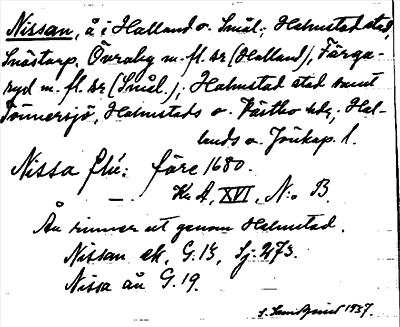 Nissan, å i Halland o. Smål.; Halmstad stad,
Snöstorp, Övraby m. fl. sr (Halland), Färga-
ryd m. fl. sr (Smål.); Halmstad stad samt
Tönnersjö, Halmstads o. Västbo hdr, Hal-
lands o. Jönköp. l.
Nissa flu: före 1680.
K. A, XVI, N:o B.
Ån rinner ut genom Halmstad.
Nissan ek, G. 13, Sj. 273.
Nissa ån G. 19.
S. 1937.